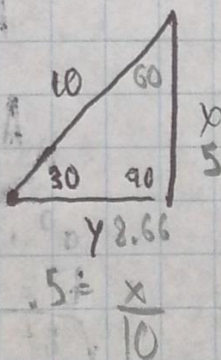 10
60
x
5
30
90
y 8.66
.5 = x
10